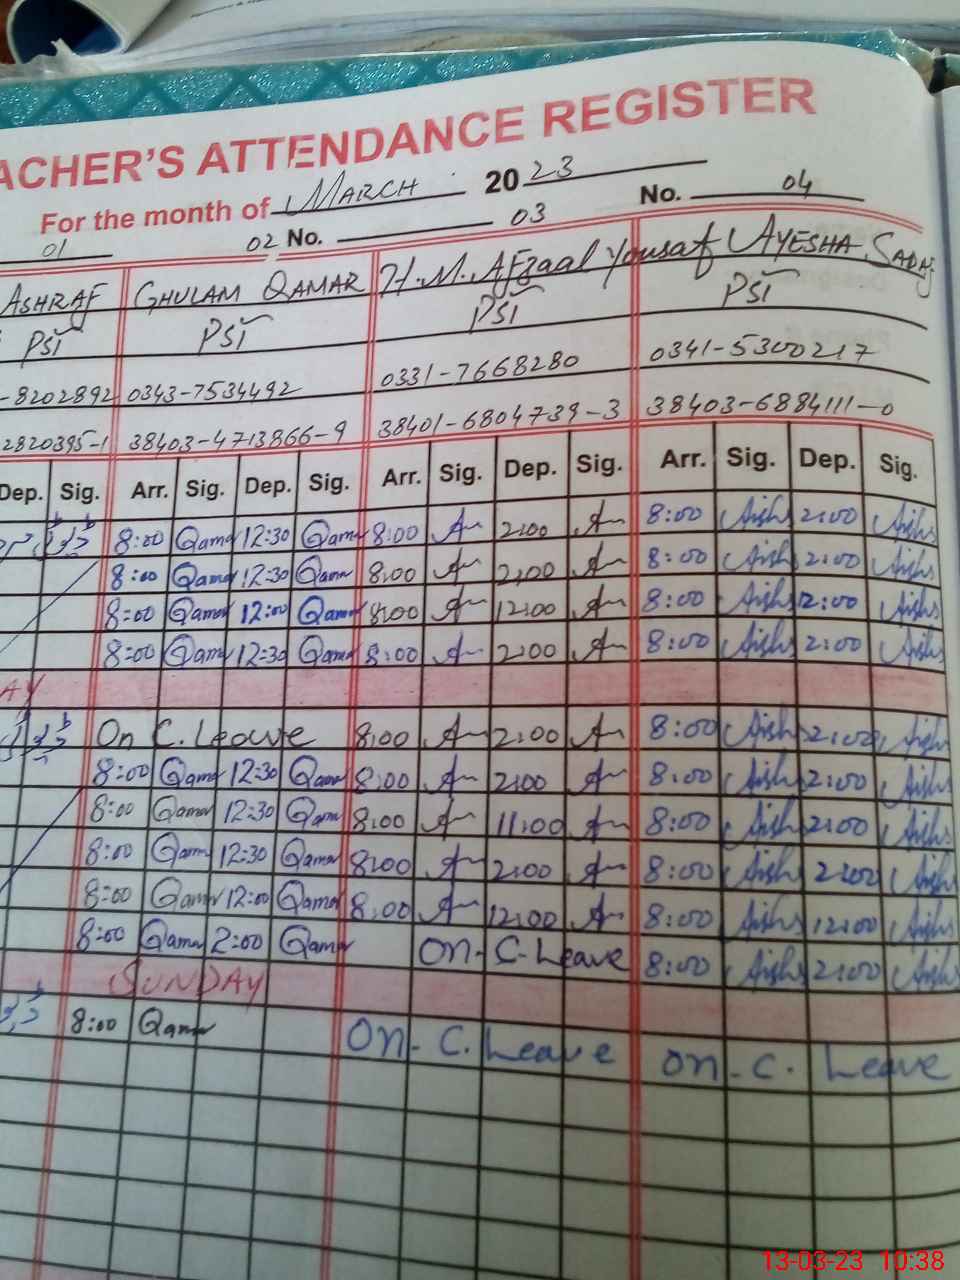 ACHER'S ATTENDANCE REGISTER
For the month of MARCH 2023
01 02 No. 03 No. 04
ASHRAF GHULAM QAMAR H.M. Afzaal Yousaf AYESHA
PST PST PST PST
-8202892 0343-7534492 0331-7668280 0341-5300217
2820395-1 38403-4713866-9 38401-6804739-3 38403-6884111-0
Dep. Sig. Arr. Sig. Dep. Sig. Arr. Sig. Dep. Sig. Arr. Sig. Dep. Sig.
8:00 Qamar 12:30 Qamar 8:00 2:00 8:00 Aisha 2:00 Aisha
8:00 Qamar 12:30 Qamar 8:00 2:00 8:00 Aisha 2:00 Aisha
8:00 Qamar 12:00 Qamar 8:00 12:00 8:00 Aisha 12:00 Aisha
8:00 Qamar 12:30 Qamar 8:00 2:00 8:00 Aisha 2:00 Aisha
AY
On C. Leave 8:00 2:00 8:00 Aisha 2:00 Aisha
8:00 Qamar 12:30 Qamar 8:00 2:00 8:00 Aisha 2:00 Aisha
8:00 Qamar 12:30 Qamar 8:00 11:00 8:00 Aisha 2:00 Aisha
8:00 Qamar 12:30 Qamar 8:00 2:00 8:00 Aisha 2:00 Aisha
8:00 Qamar 12:00 Qamar 8:00 12:00 8:00 Aisha 12:00 Aisha
8:00 Qamar 2:00 Qamar On-C-Leave 8:00 Aisha 2:00 Aisha
SUNDAY
8:00 Qamar On-C. Leave On-C. Leave
13-03-23 10:38